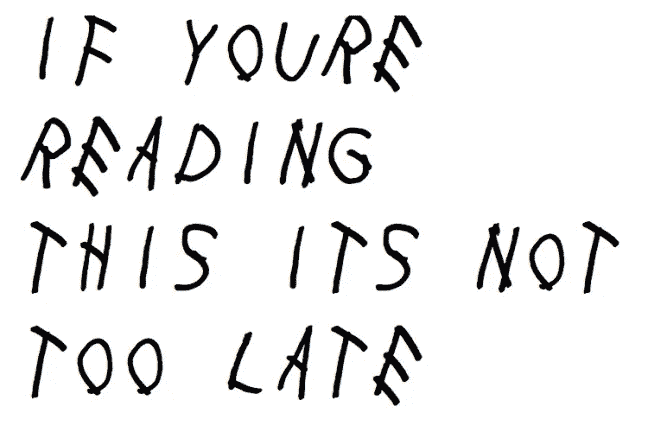 IF YOURE
READING
THIS ITS NOT
TOO LATE